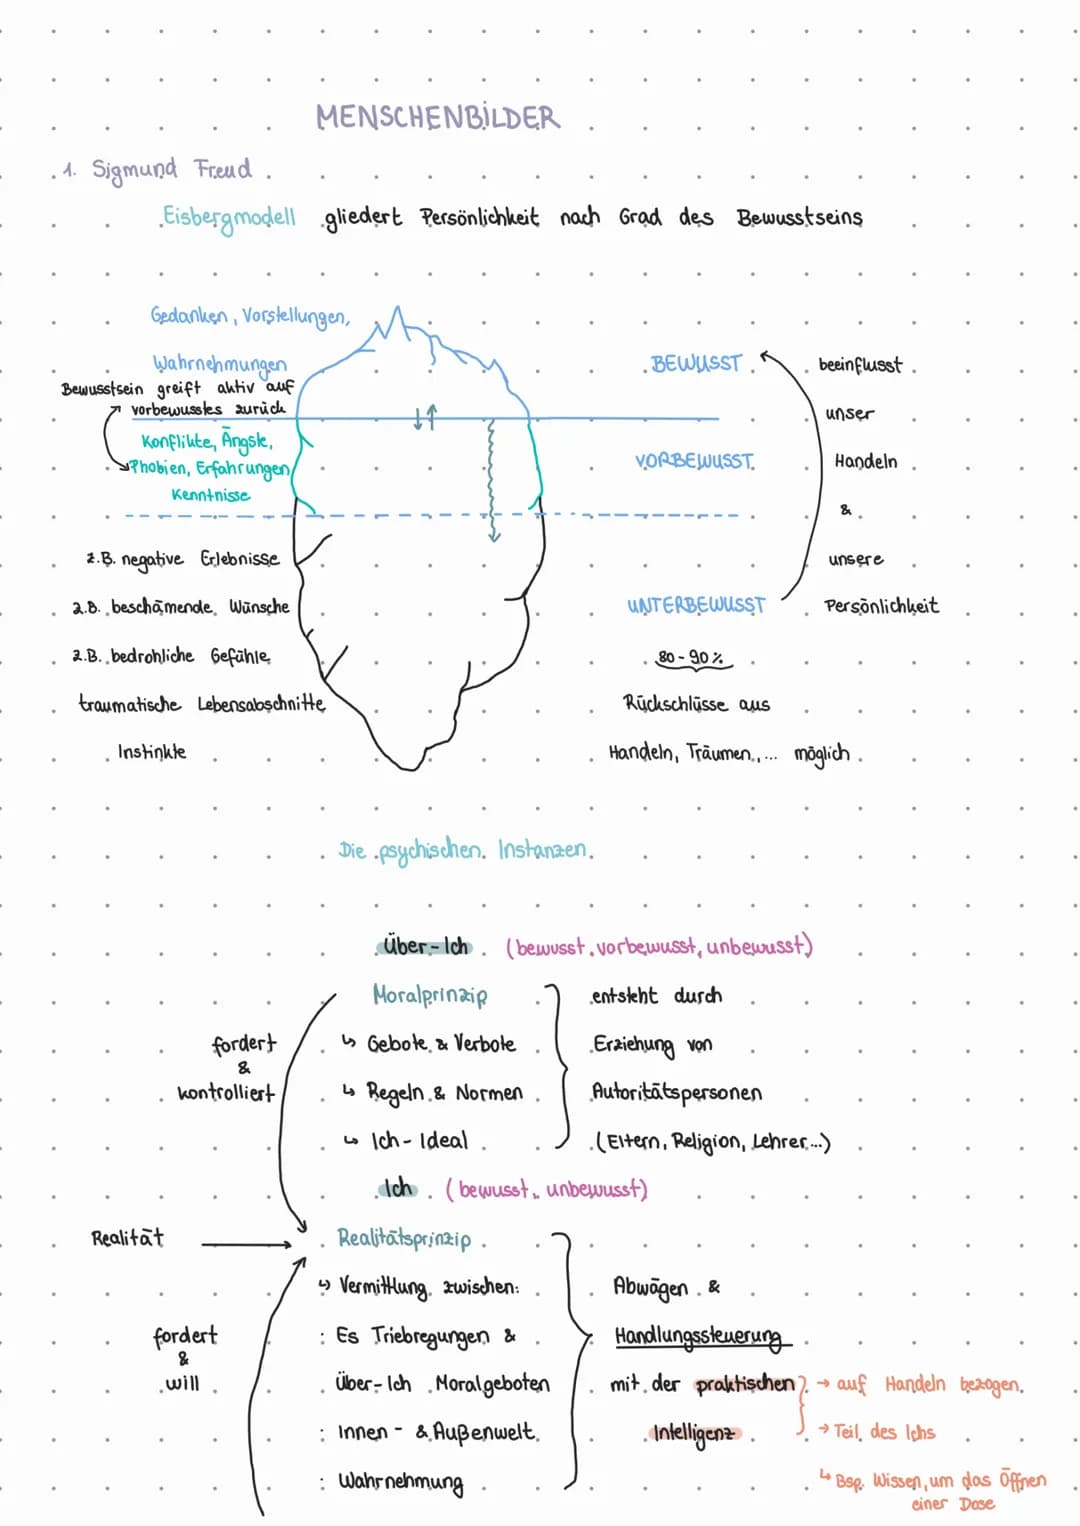 MENSCHENBILDER
1. Sigmund Freud
Eisbergmodell gliedert Persönlichkeit nach Grad des Bewusstseins
Gedanken, Vorstellungen,
Wahrnehmungen
Bewusstsein greift aktiv auf
vorbewusstes zurück
Konflikte, Ängste,
Phobien, Erfahrungen,
Kenntnisse
z.B. negative Erlebnisse
z.B. beschämende Wünsche
z.B. bedrohliche Gefühle
traumatische Lebensabschnitte
Instinkte
BEWUSST
VORBEWUSST
UNTERBEWUSST
80-90%
Rückschlüsse aus
Handeln, Träumen,... möglich
beeinflusst
unser
Handeln
&
unsere
Persönlichkeit
Die psychischen Instanzen
Über-Ich (bewusst, vorbewusst, unbewusst)
Moralprinzip
↳ Gebote & Verbote
↳ Regeln & Normen
↳ Ich-Ideal
entsteht durch
Erziehung von
Autoritätspersonen
(Eltern, Religion, Lehrer...)
fordert
&
kontrolliert
Ich (bewusst, unbewusst)
Realität → Realitätsprinzip
↳ Vermittlung zwischen:
: Es Triebregungen &
Über-Ich Moralgeboten
: Innen- & Außenwelt
: Wahrnehmung
fordert
&
will
Abwägen &
Handlungssteuerung
mit der praktischen
Intelligenz
→ auf Handeln bezogen
→ Teil des Ichs
↳ Bsp. Wissen, um das Öffnen
einer Dose